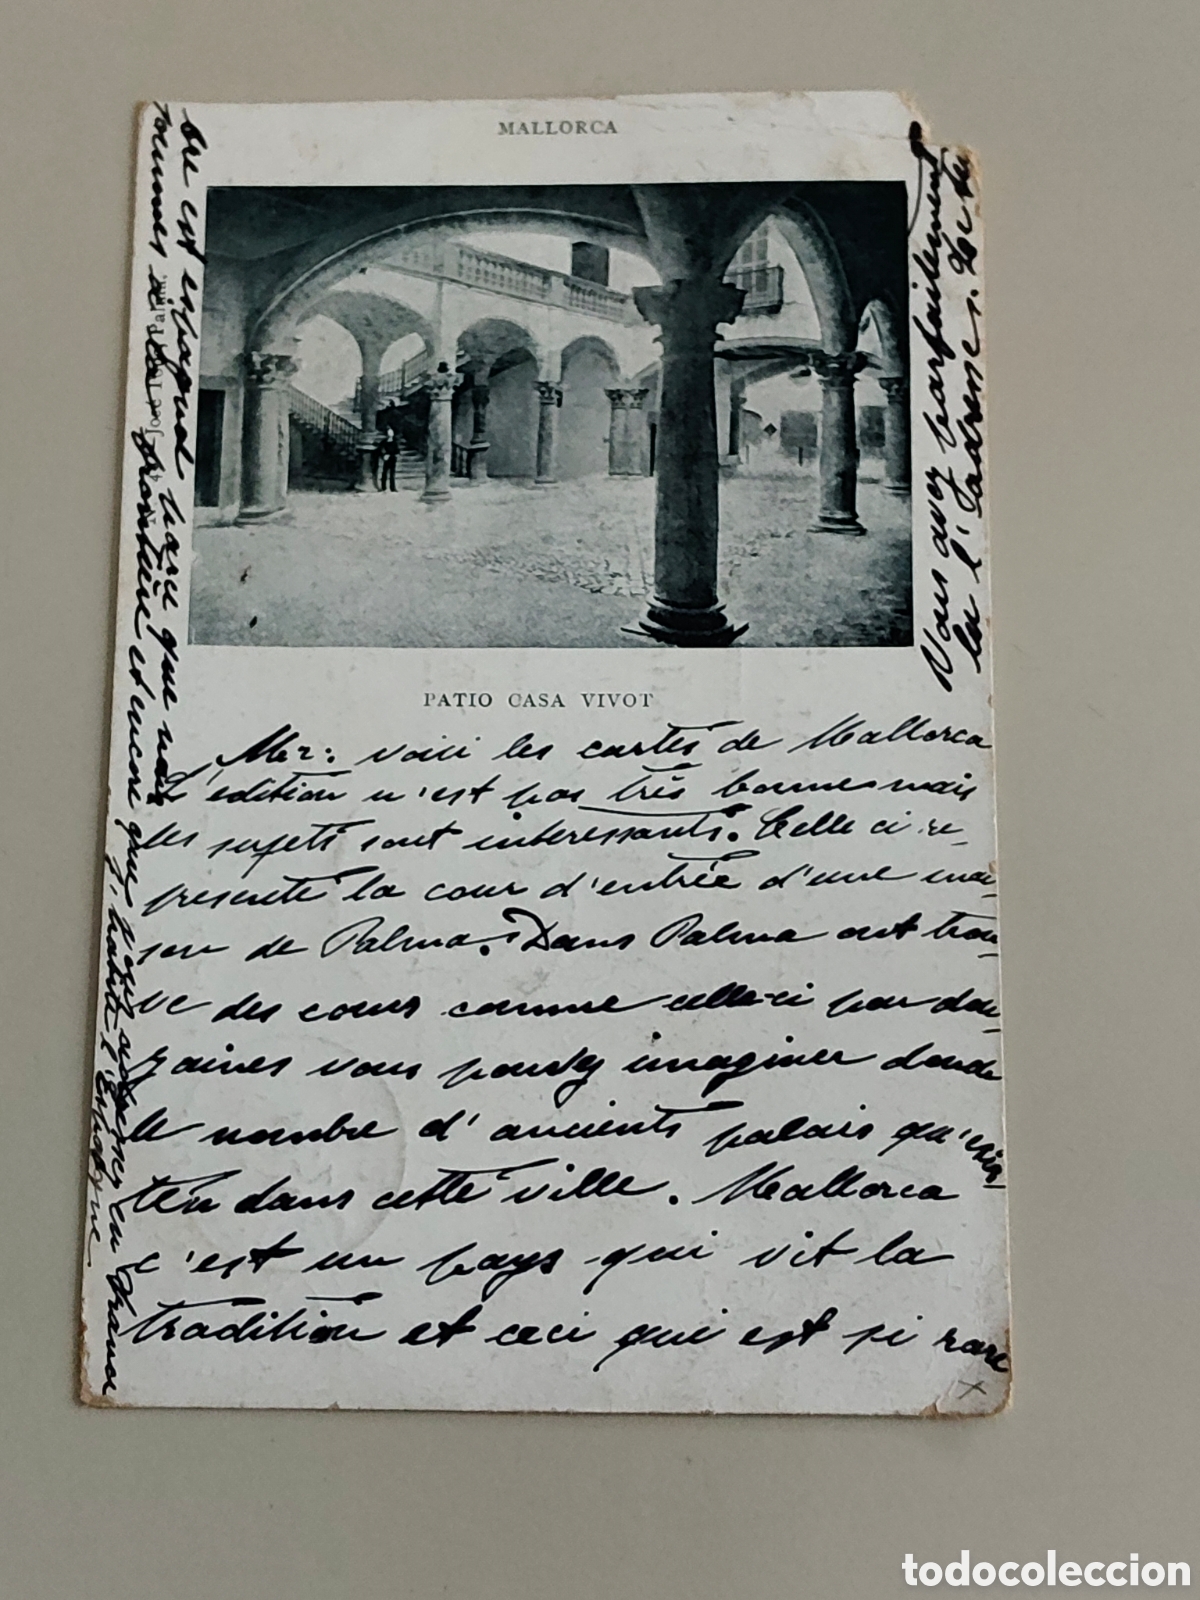 MALLORCA
PATIO CASA VIVOT
Mer: voici les cartes de Mallorca
L'edition n'est pas très bonne mais
les sujets sont interessants. Celle ci re-
presente la cour d'entrée d'une mai
son de Palma. Dans Palma ont trou-
ve des cours comme celle-ci par dou-
zaines vous pouvez imaginer donde
le nombre d'ancients palais qu'exis-
ten dans cette ville. Mallorca
c'est un pays qui vit la
tradition et ceci qui est si rare
x
Vous avez parfaitement
la l'adresse.
bre est espagnol
que nous
sommes à la frontière et encore que vous
en France
j'habite l'Espagne
José
Palma
todocoleccion